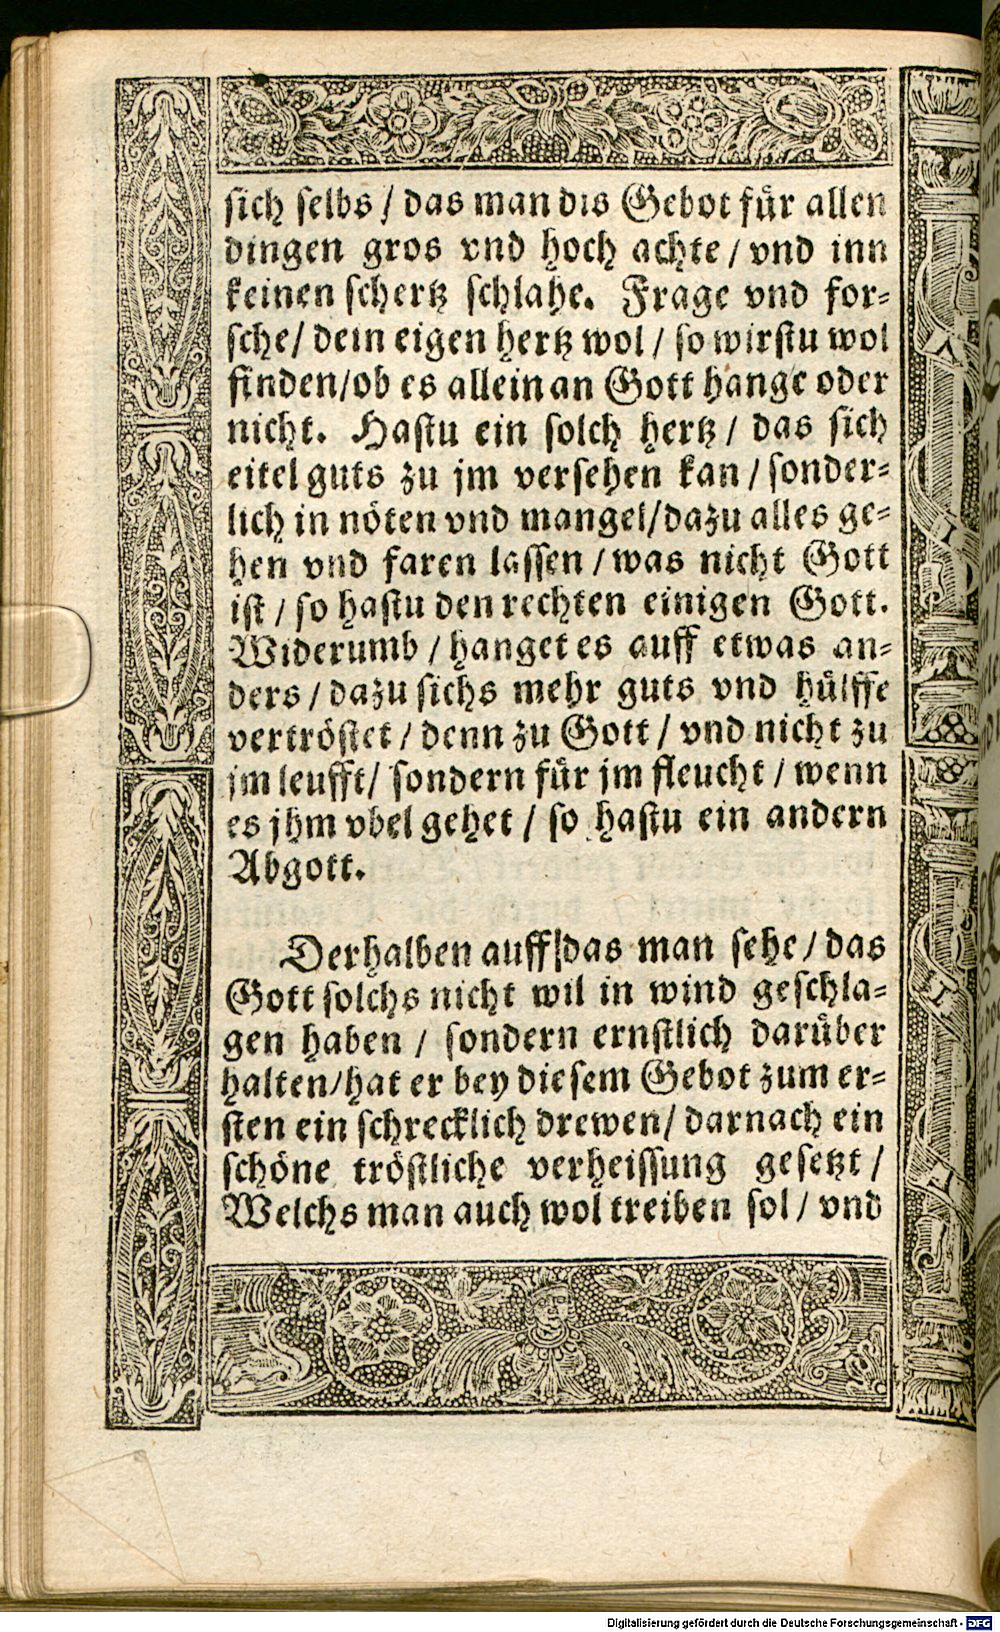 sich selbs / das man dis Gebot für allen
dingen gros vnd hoch achte / vnd inn
keinen schertz schlahe. Frage vnd for-
sche / dein eigen hertz wol / so wirstu wol
finden / ob es allein an Gott hange oder
nicht. Hastu ein solch hertz / das sich
eitel guts zu jm versehen kan / sonder-
lich in nöten vnd mangel / dazu alles ge-
hen vnd faren lassen / was nicht Gott
ist / so hastu den rechten einigen Gott.
Widerumb / hanget es auff etwas an-
ders / dazu sichs mehr guts vnd hülffe
vertröstet / denn zu Gott / vnd nicht zu
jm leufft / sondern für jm fleucht / wenn
es jhm vbel gehet / so hastu ein andern
Abgott.
Derhalben auff das man sehe / das
Gott solchs nicht wil in wind geschla-
gen haben / sondern ernstlich darüber
halten / hat er bey diesem Gebot zum er-
sten ein schrecklich drewen / darnach ein
schöne tröstliche verheissung gesetzt /
Welchs man auch wol treiben sol / vnd
Digitalisierung gefördert durch die Deutsche Forschungsgemeinschaft - DFG